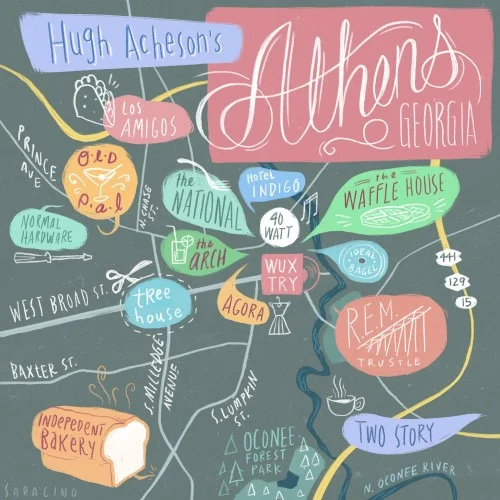 Hugh Acheson's
Athens
GEORGIA
LOS
AMIGOS
PRINCE
AVE
OLD
Pal
N. CHASE
ST.
the
NATIONAL
HOTEL
INDIGO
the
WAFFLE HOUSE
NORMAL
HARDWARE
40
WATT
the
ARCH
IDEAL
BAGEL
441
129
15
WUX
TRY
WEST BROAD ST.
tree
house
AGORA
R.E.M.
TRUSTLE
BAXTER ST.
S. MILLEDGE
AVENUE
S. LUMPKIN
ST.
INDEPEDENT
BAKERY
OCONEE
FOREST
PARK
TWO STORY
N. OCONEE RIVER
SARACINO